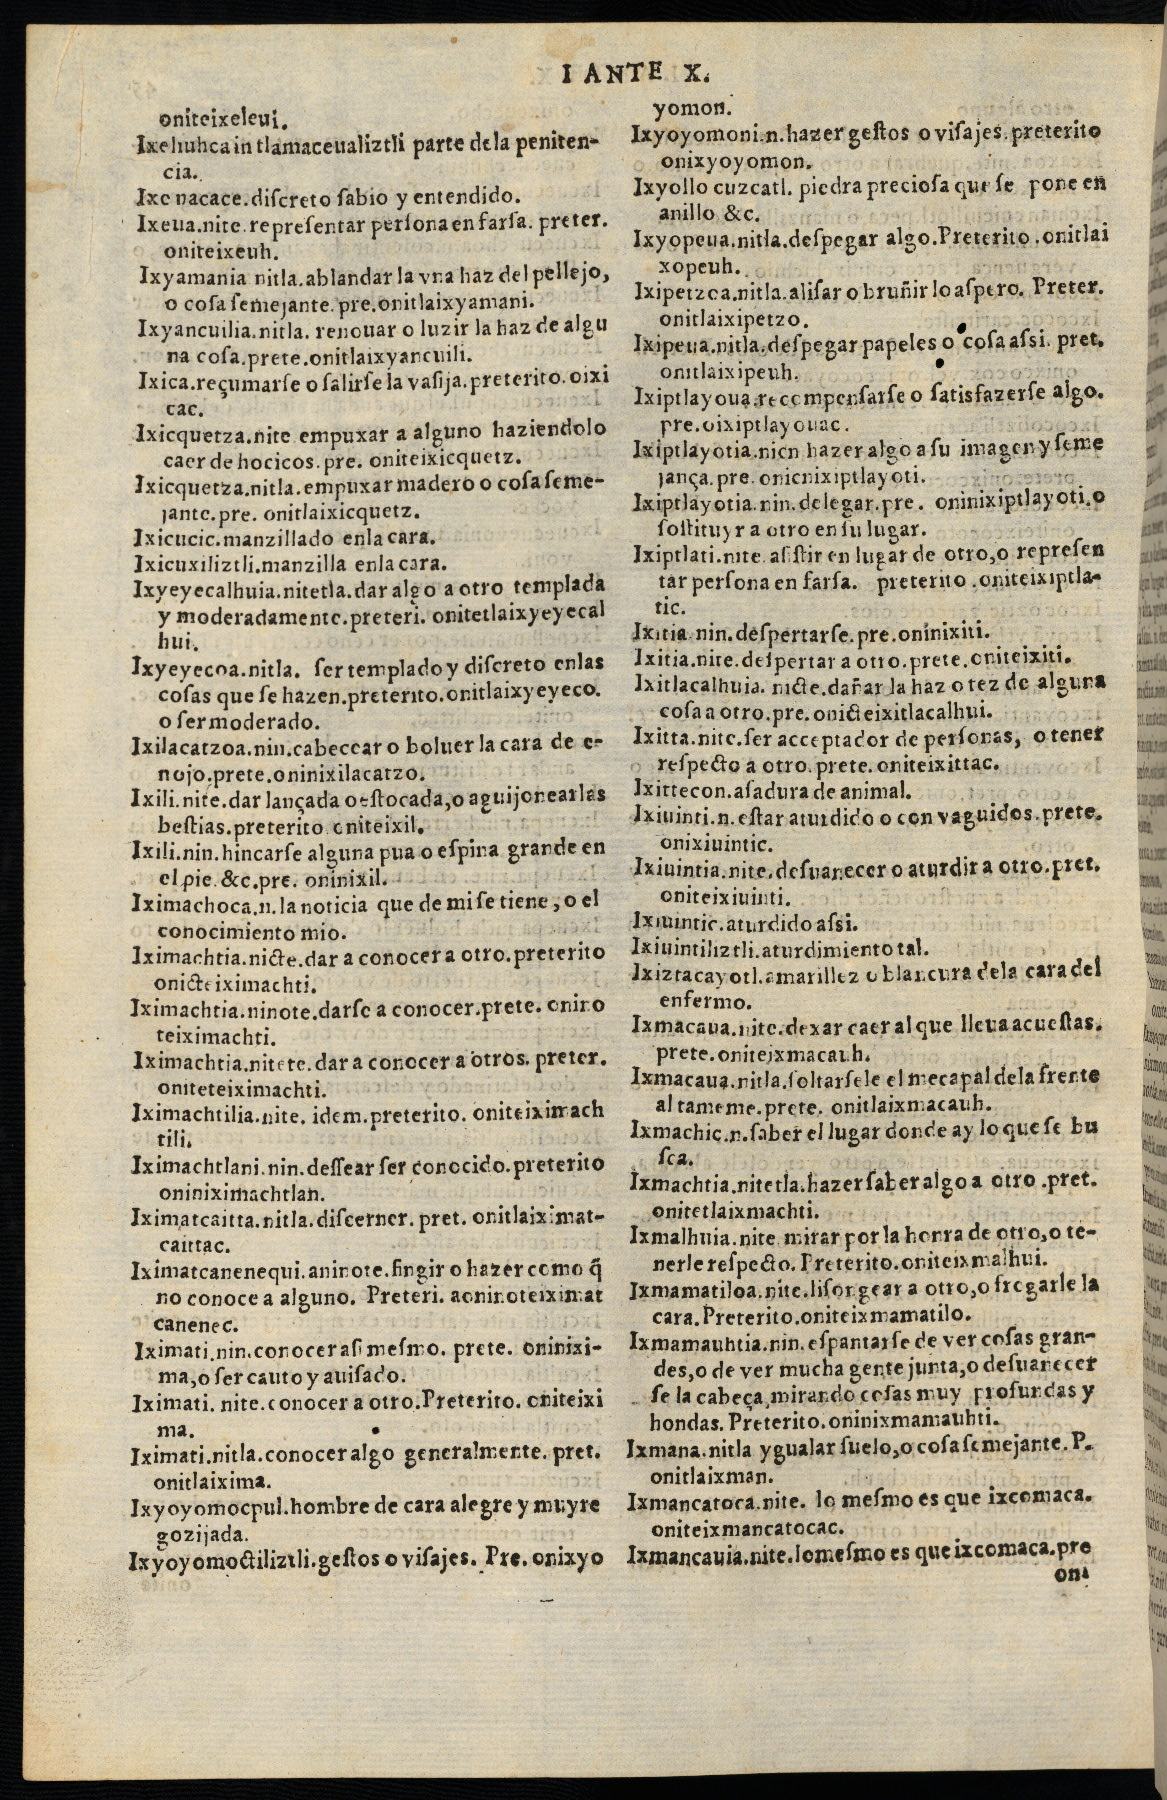 I ANTE X.
oniteixeleui.
Ixeliuhca in tlamaceualiztli parte dela peniten-
cia.
Ixe nacace.diſcreto ſabio y entendido.
Ixeua.nite.repreſentar perſona en farſa. preter.
oniteixeuh.
Ixyamania nitla.ablandar la vna haz del pellejo,
o coſa ſemejante.pre.onitlaixyamani.
Ixyancuilia.nitla. renouar o luzir la haz de algu
na coſa.prete.onitlaixyancuili.
Ixica.reçumarſe o ſalirſe la vaſija.preterito.oixi
cac.
Ixicquetza.nite empuxar a alguno haziendolo
caer de hocicos.pre. oniteixicquetz.
Ixicquetza.nitla.empuxar madero o coſa ſeme-
jante.pre. onitlaixicquetz.
Ixicucic.manzillado enla cara.
Ixicuxiliztli.manzilla enla cara.
Ixyeyecalhuia.nitetla.dar algo a otro templada
y moderadamente.preteri. onitetlaixyeyecal
hui.
Ixyeyecoa.nitla. ſer templado y diſcreto enlas
coſas que ſe hazen.preterito.onitlaixyeyeco.
o ſer moderado.
Ixilacatzoa.nin.cabecear o boluer la cara de e-
nojo.prete.oninixilacatzo.
Ixili.nite.dar lançada o eſtocada,o aguijonear las
beſtias.preterito oniteixil.
Ixili.nin.hincarſe alguna pua o eſpina grande en
el pie.&c.pre. oninixil.
Iximachoca.n.la noticia que de mi ſe tiene,o el
conocimiento mio.
Iximachtia.nicte.dar a conocer a otro.preterito
onicteiximachti.
Iximachtia.ninote.darſe a conocer.prete. onino
teiximachti.
Iximachtia.nitete.dar a conocer a otros. preter.
oniteteiximachti.
Iximachtilia.nite. idem.preterito. oniteiximach
tili.
Iximachtlani.nin.deſſear ſer conocido.preterito
oniniximachtlan.
Iximatcaitta.nitla.diſcerner. pret. onitlaiximat-
caittac.
Iximatcanenequi.aninote.fingir o hazer como q̃
no conoce a alguno. Preteri. aoninoteiximat
canenec.
Iximati.nin.conocer aſi meſmo. prete. oninixi-
ma,o ſer cauto y auiſado.
Iximati. nite.conocer a otro.Preterito. oniteixi
ma.
Iximati.nitla.conocer algo generalmente. pret.
onitlaixima.
Ixyoyomocpul.hombre de cara alegre y muyre
gozijada.
Ixyoyomoctiliztli.geſtos o viſajes. Pre. onixyo
yomon.
Ixyoyomoni.n.hazer geſtos o viſajes.preterito
onixyoyomon.
Ixyollo cuzcatl. piedra precioſa que ſe pone en
anillo &c.
Ixyopeua.nitla.deſpegar algo.Preterito.onitlai
xopeuh.
Ixipetzoa.nitla.aliſar o bruñir lo aſpero. Preter.
onitlaixipetzo.
Ixipeua.nitla.deſpegar papeles o coſa aſsi. pret.
onitlaixipeuh.
Ixiptlayoua.recompenſarſe o ſatisfazerſe algo.
pre.oixiptlayouac.
Ixiptlayotia.nicn hazer algo a ſu imagen y ſeme
jança.pre. onicnixiptlayoti.
Ixiptlayotia.nin.delegar.pre. oninixiptlayoti.o
ſoſtituyr a otro en ſu lugar.
Ixiptlati.nite.aſiſtir en lugar de otro,o repreſen
tar perſona en farſa. preterito.oniteixiptla-
tic.
Ixitia.nin.deſpertarſe.pre.oninixiti.
Ixitia.nite.deſpertar a otro.prete.oniteixiti.
Ixitlacalhuia. nicte.dañar la haz o tez de alguna
coſa a otro.pre.onicteixitlacalhui.
Ixitta.nite.ſer acceptador de perſonas, o tener
reſpecto a otro.prete. oniteixittac.
Ixittecon.aſadura de animal.
Ixiuinti.n.eſtar aturdido o con vaguidos.prete.
onixiuintic.
Ixiuintia.nite.deſuanecer o aturdir a otro.pret.
oniteixiuinti.
Ixiuintic.aturdido aſsi.
Ixiuintiliztli.aturdimiento tal.
Ixiztacayotl.amarillez o blancura dela cara del
enfermo.
Ixmacaua.nite.dexar caer al que lleua acueſtas.
prete.oniteixmacauh.
Ixmacaua.nitla.ſoltarſele el mecapal dela frente
al tameme.prete. onitlaixmacauh.
Ixmachic.n.ſaber el lugar donde ay lo que ſe bu
ſca.
Ixmachtia.nitetla.hazer ſaber algo a otro.pret.
onitetlaixmachti.
Ixmalhuia.nite mirar por la honra de otro,o te-
nerle reſpecto. Preterito.oniteixmalhui.
Ixmamatiloa.nite.liſongear a otro,o fregarle la
cara.Preterito.oniteixmamatilo.
Ixmamauhtia.nin.eſpantarſe de ver coſas gran-
des,o de ver mucha gente junta,o deſuanecer
ſe la cabeça,mirando coſas muy profundas y
hondas. Preterito.oninixmamauhti.
Ixmana.nitla ygualar ſuelo,o coſa ſemejante.P.
onitlaixman.
Ixmancatoca.nite. lo meſmo es que ixcomaca.
oniteixmancatocac.
Ixmancauia.nite.lo meſmo es que ixcomaca.pre
oni